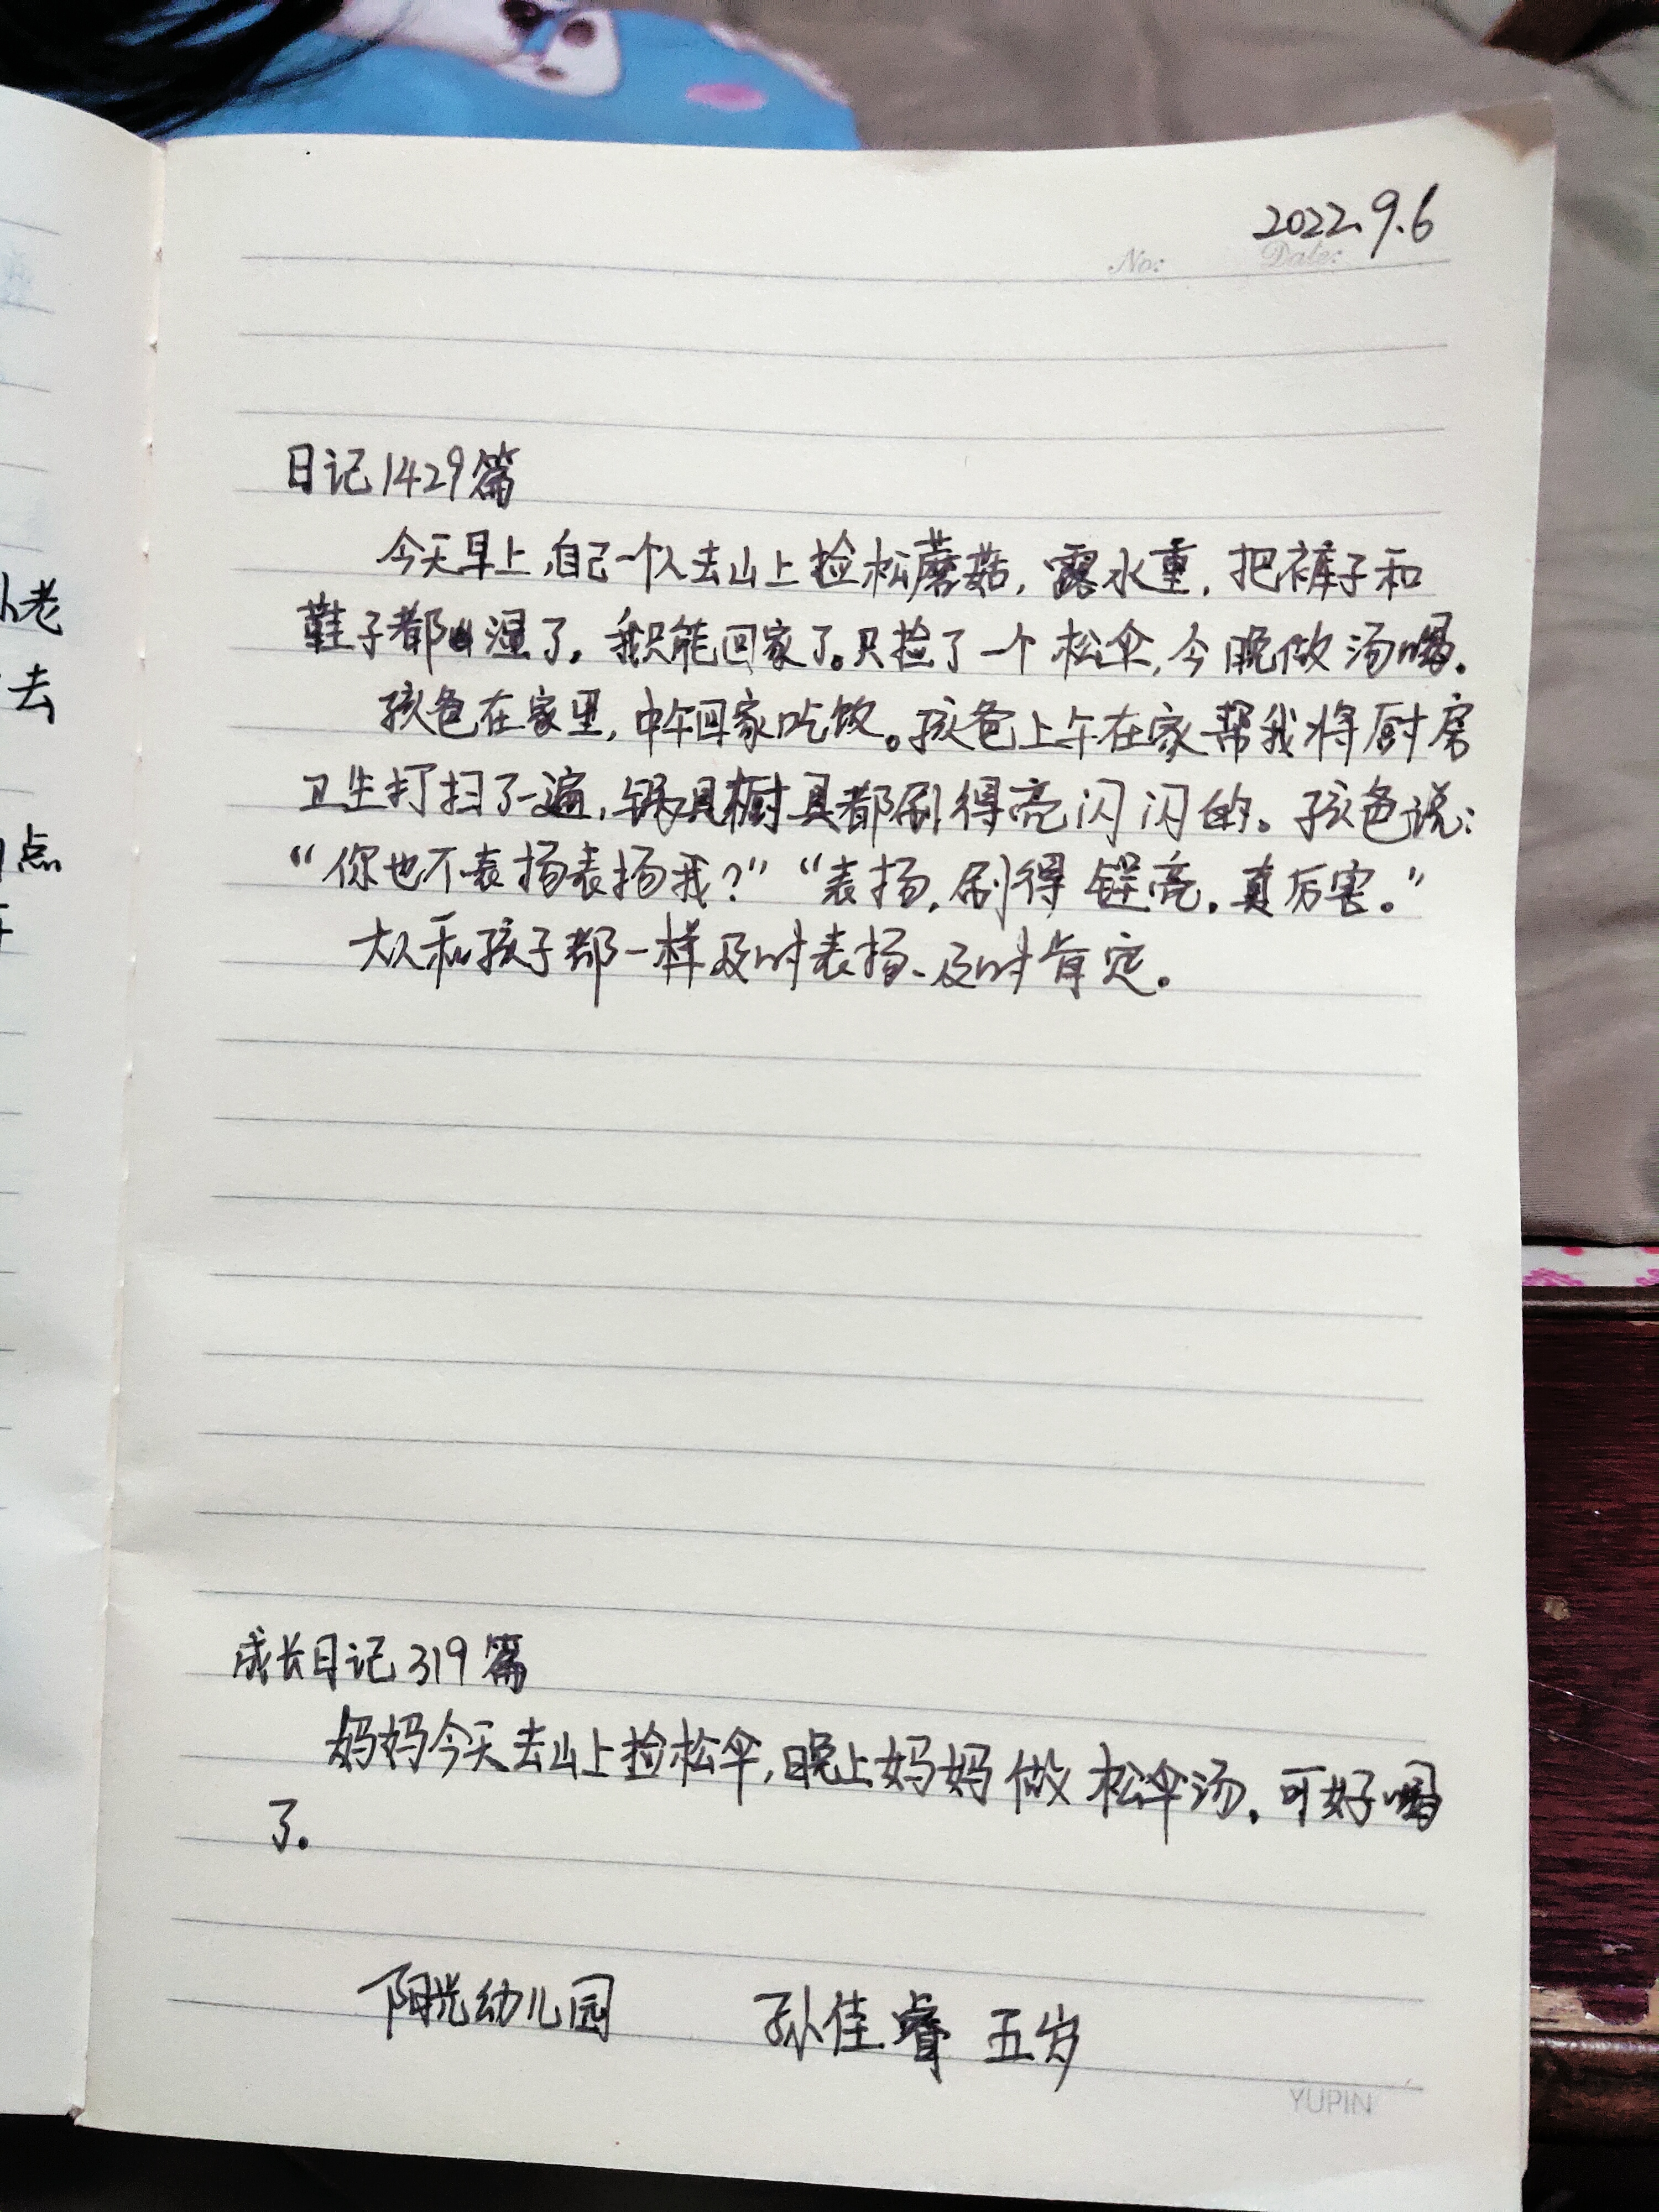 2022.9.6
No: Date:
日记1429篇
今天早上,自己一个人去山上捡松蘑菇,露水重,把裤子和
鞋子都湿了。我只能回家了。只捡了一个松伞,今晚做汤喝。
孩爸在家里,中午回家吃饭。孩爸上午在家帮我将厨房
卫生打扫了一遍,锅具橱具都刷得亮闪闪的。孩爸说:
“你也不表扬表扬我?”“表扬,刷得锃亮,真厉害。”
大人和孩子都一样及时表扬、及时肯定。
成长日记319篇
妈妈今天去山上捡松伞,晚上妈妈做松伞汤。可好喝
了。
阳光幼儿园 孙佳睿 五岁
YUPIN
老
去
点